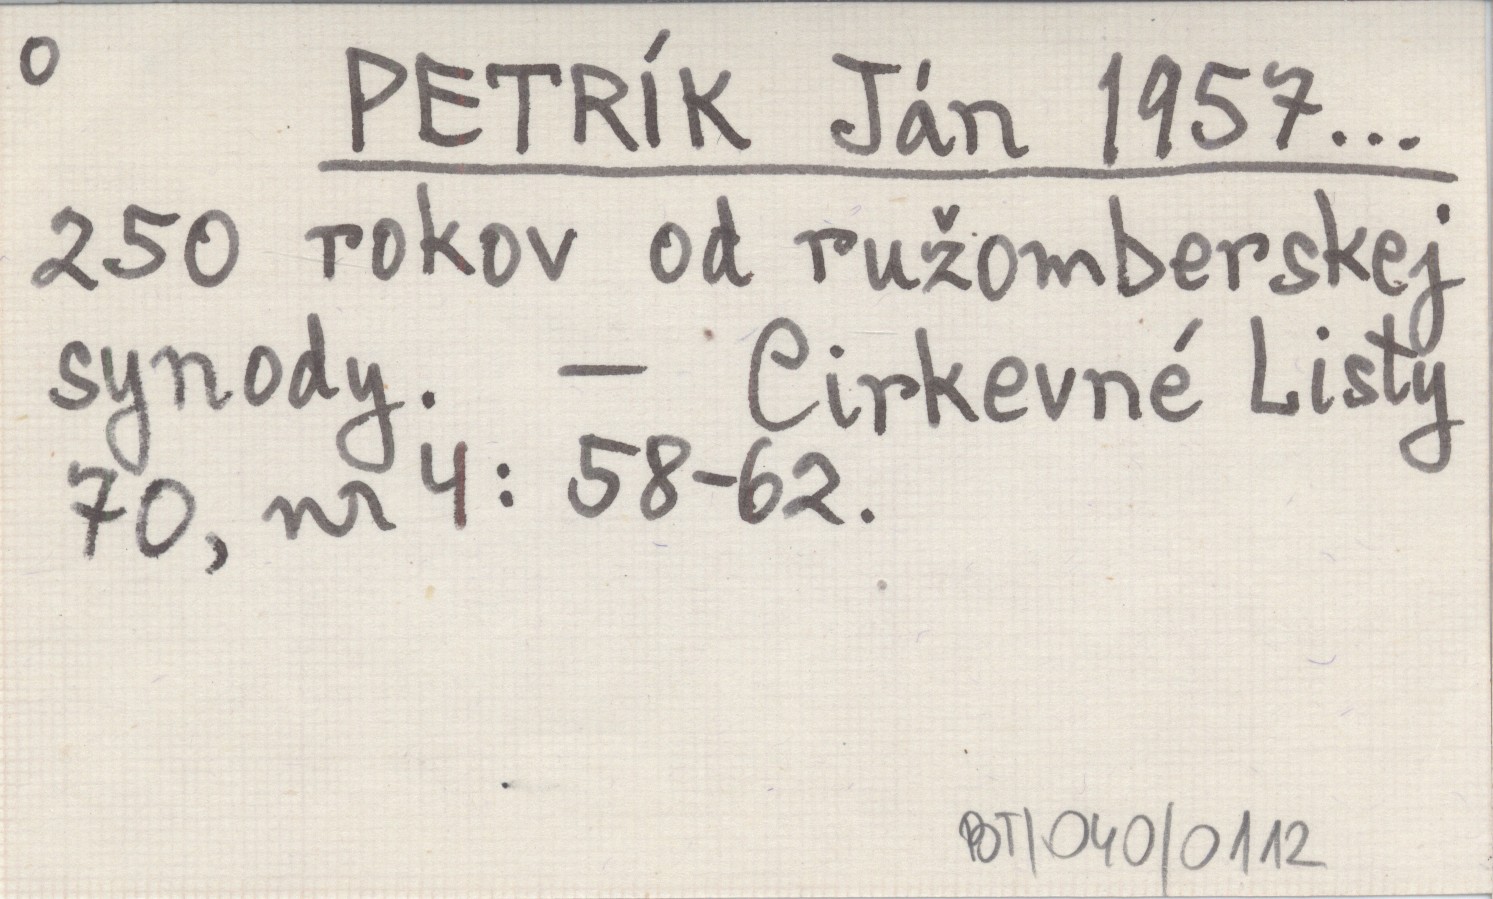 o
PETRÍK Ján 1957...
250 rokov od ružomberskej
synody. — Cirkevné Listy
70, nr 4: 58-62.
BOT/040/0112